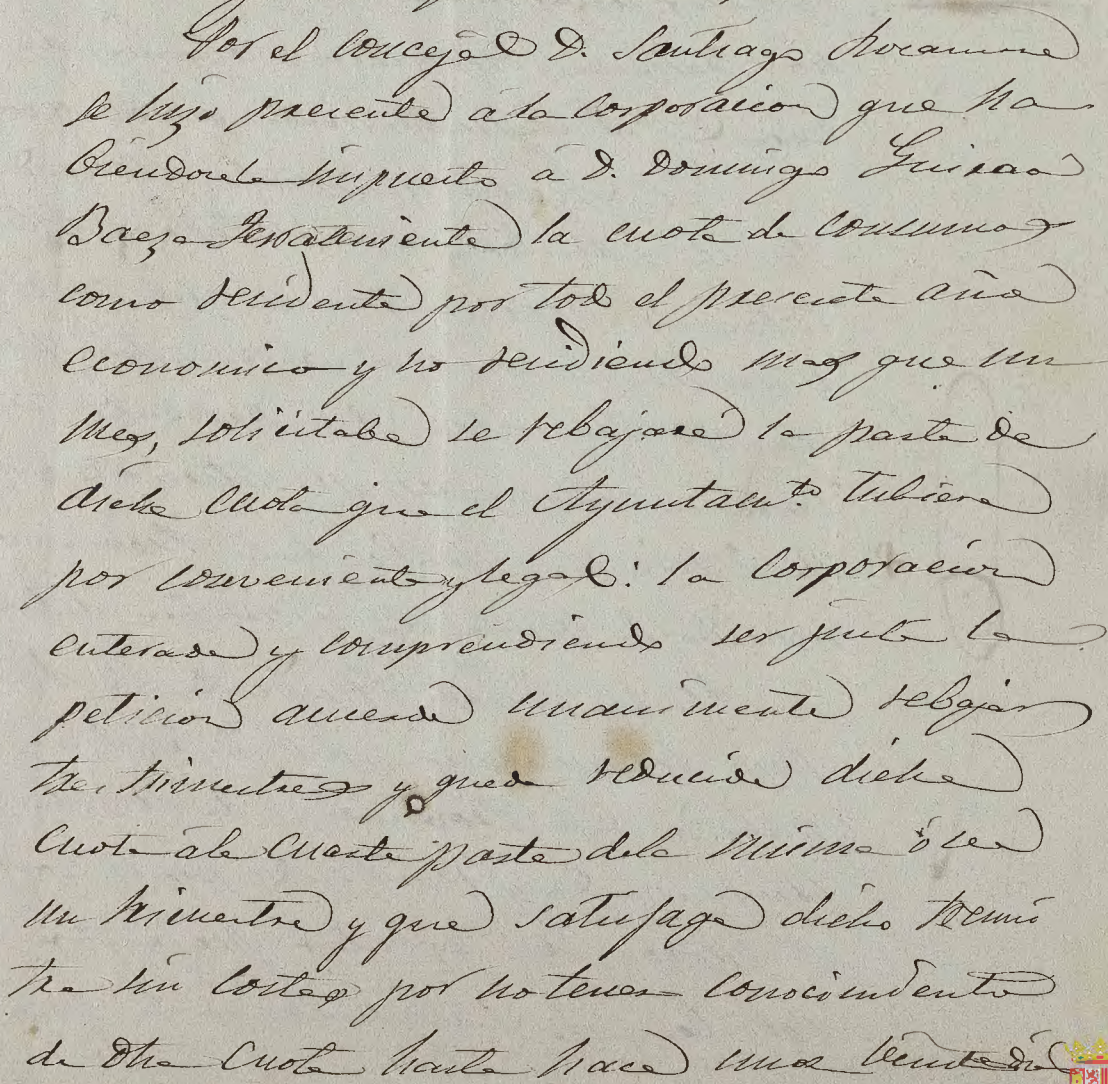 Por el concejal D. Santiago Rocamora
se hizo presente á la corporacion que ha
biendosele impuesto á D. Domingo Guirao
Baeza terrateniente la cuota de consumos
como residente por todo el presente año
economico y no residiendo mas que un
mes, solicitaba se rebajase la parte de
dicha cuota que el Ayuntam.to tubiera
por conveniente y legal: la corporacion
enterada y comprendiendo ser justa la
peticion acuerda unanimente rebajar
tres trimestres y queda reducida dicha
cuota á la cuarta parte de la misma ó sea
un trimestre y que satisfaga dicho trimes
tre sin costas por no tener conocimiento
de dha cuota hasta hace unos veinte dias